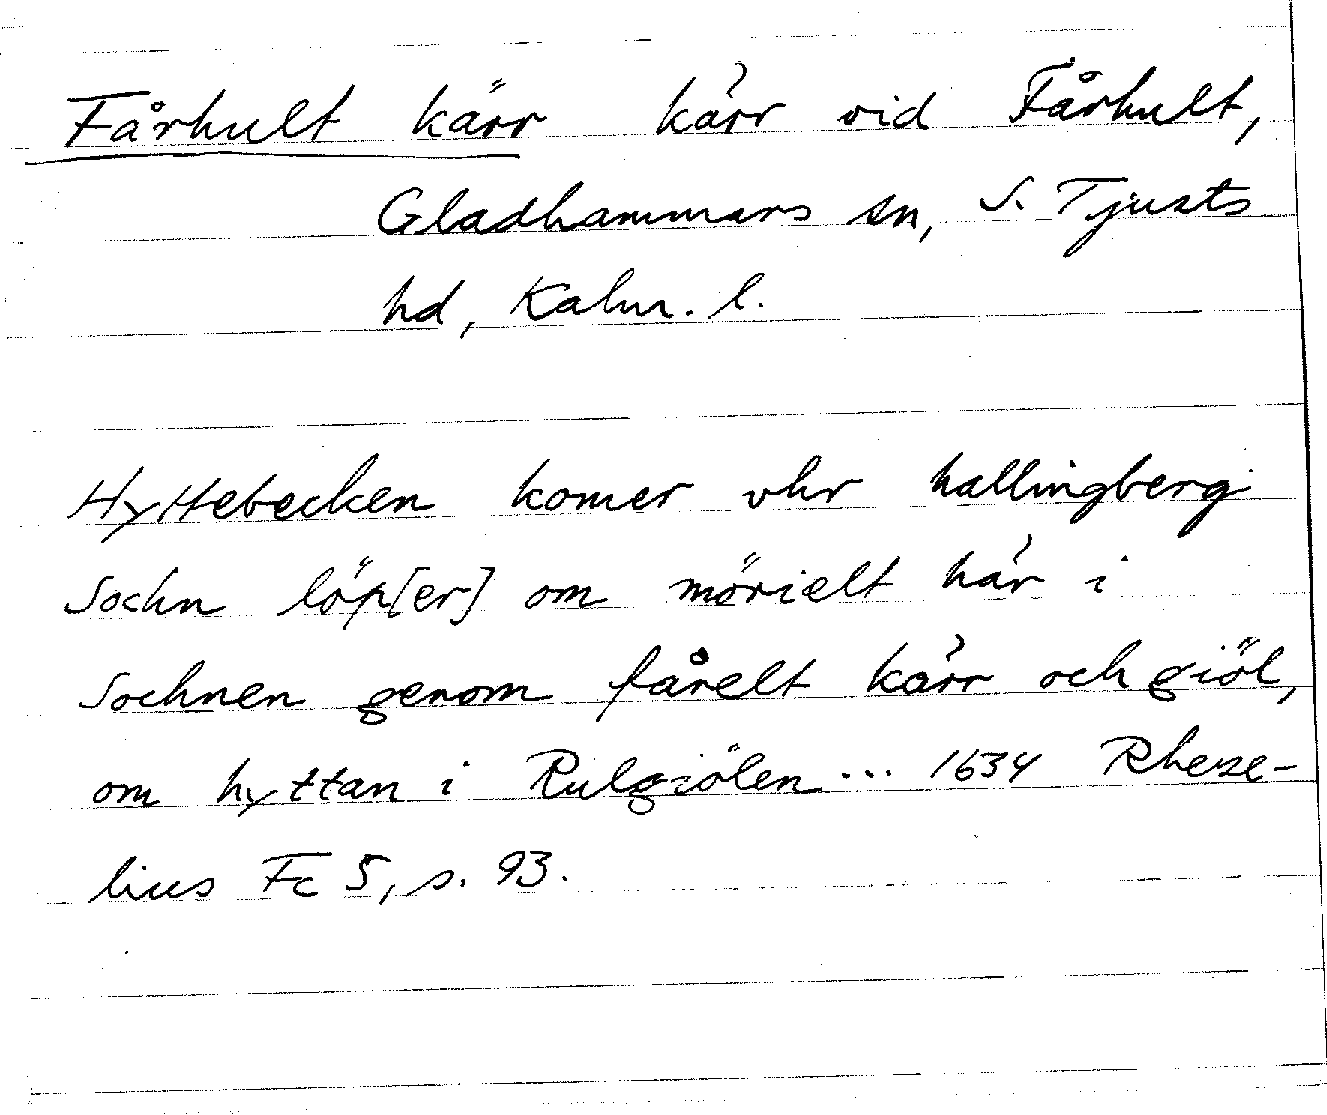 Fårhult kärr kärr vid Fårhult,
Gladhammars sn, S. Tjusts
hd, Kalm. l.
Hyttebecken komer vhr hallingberg
Sochn löp[er] om mörielt här i
Sochnen genom fårelt kärr och giöl,
om hyttan i Rulgiölen ... 1634 Rheze-
lius Fc 5, s. 93.